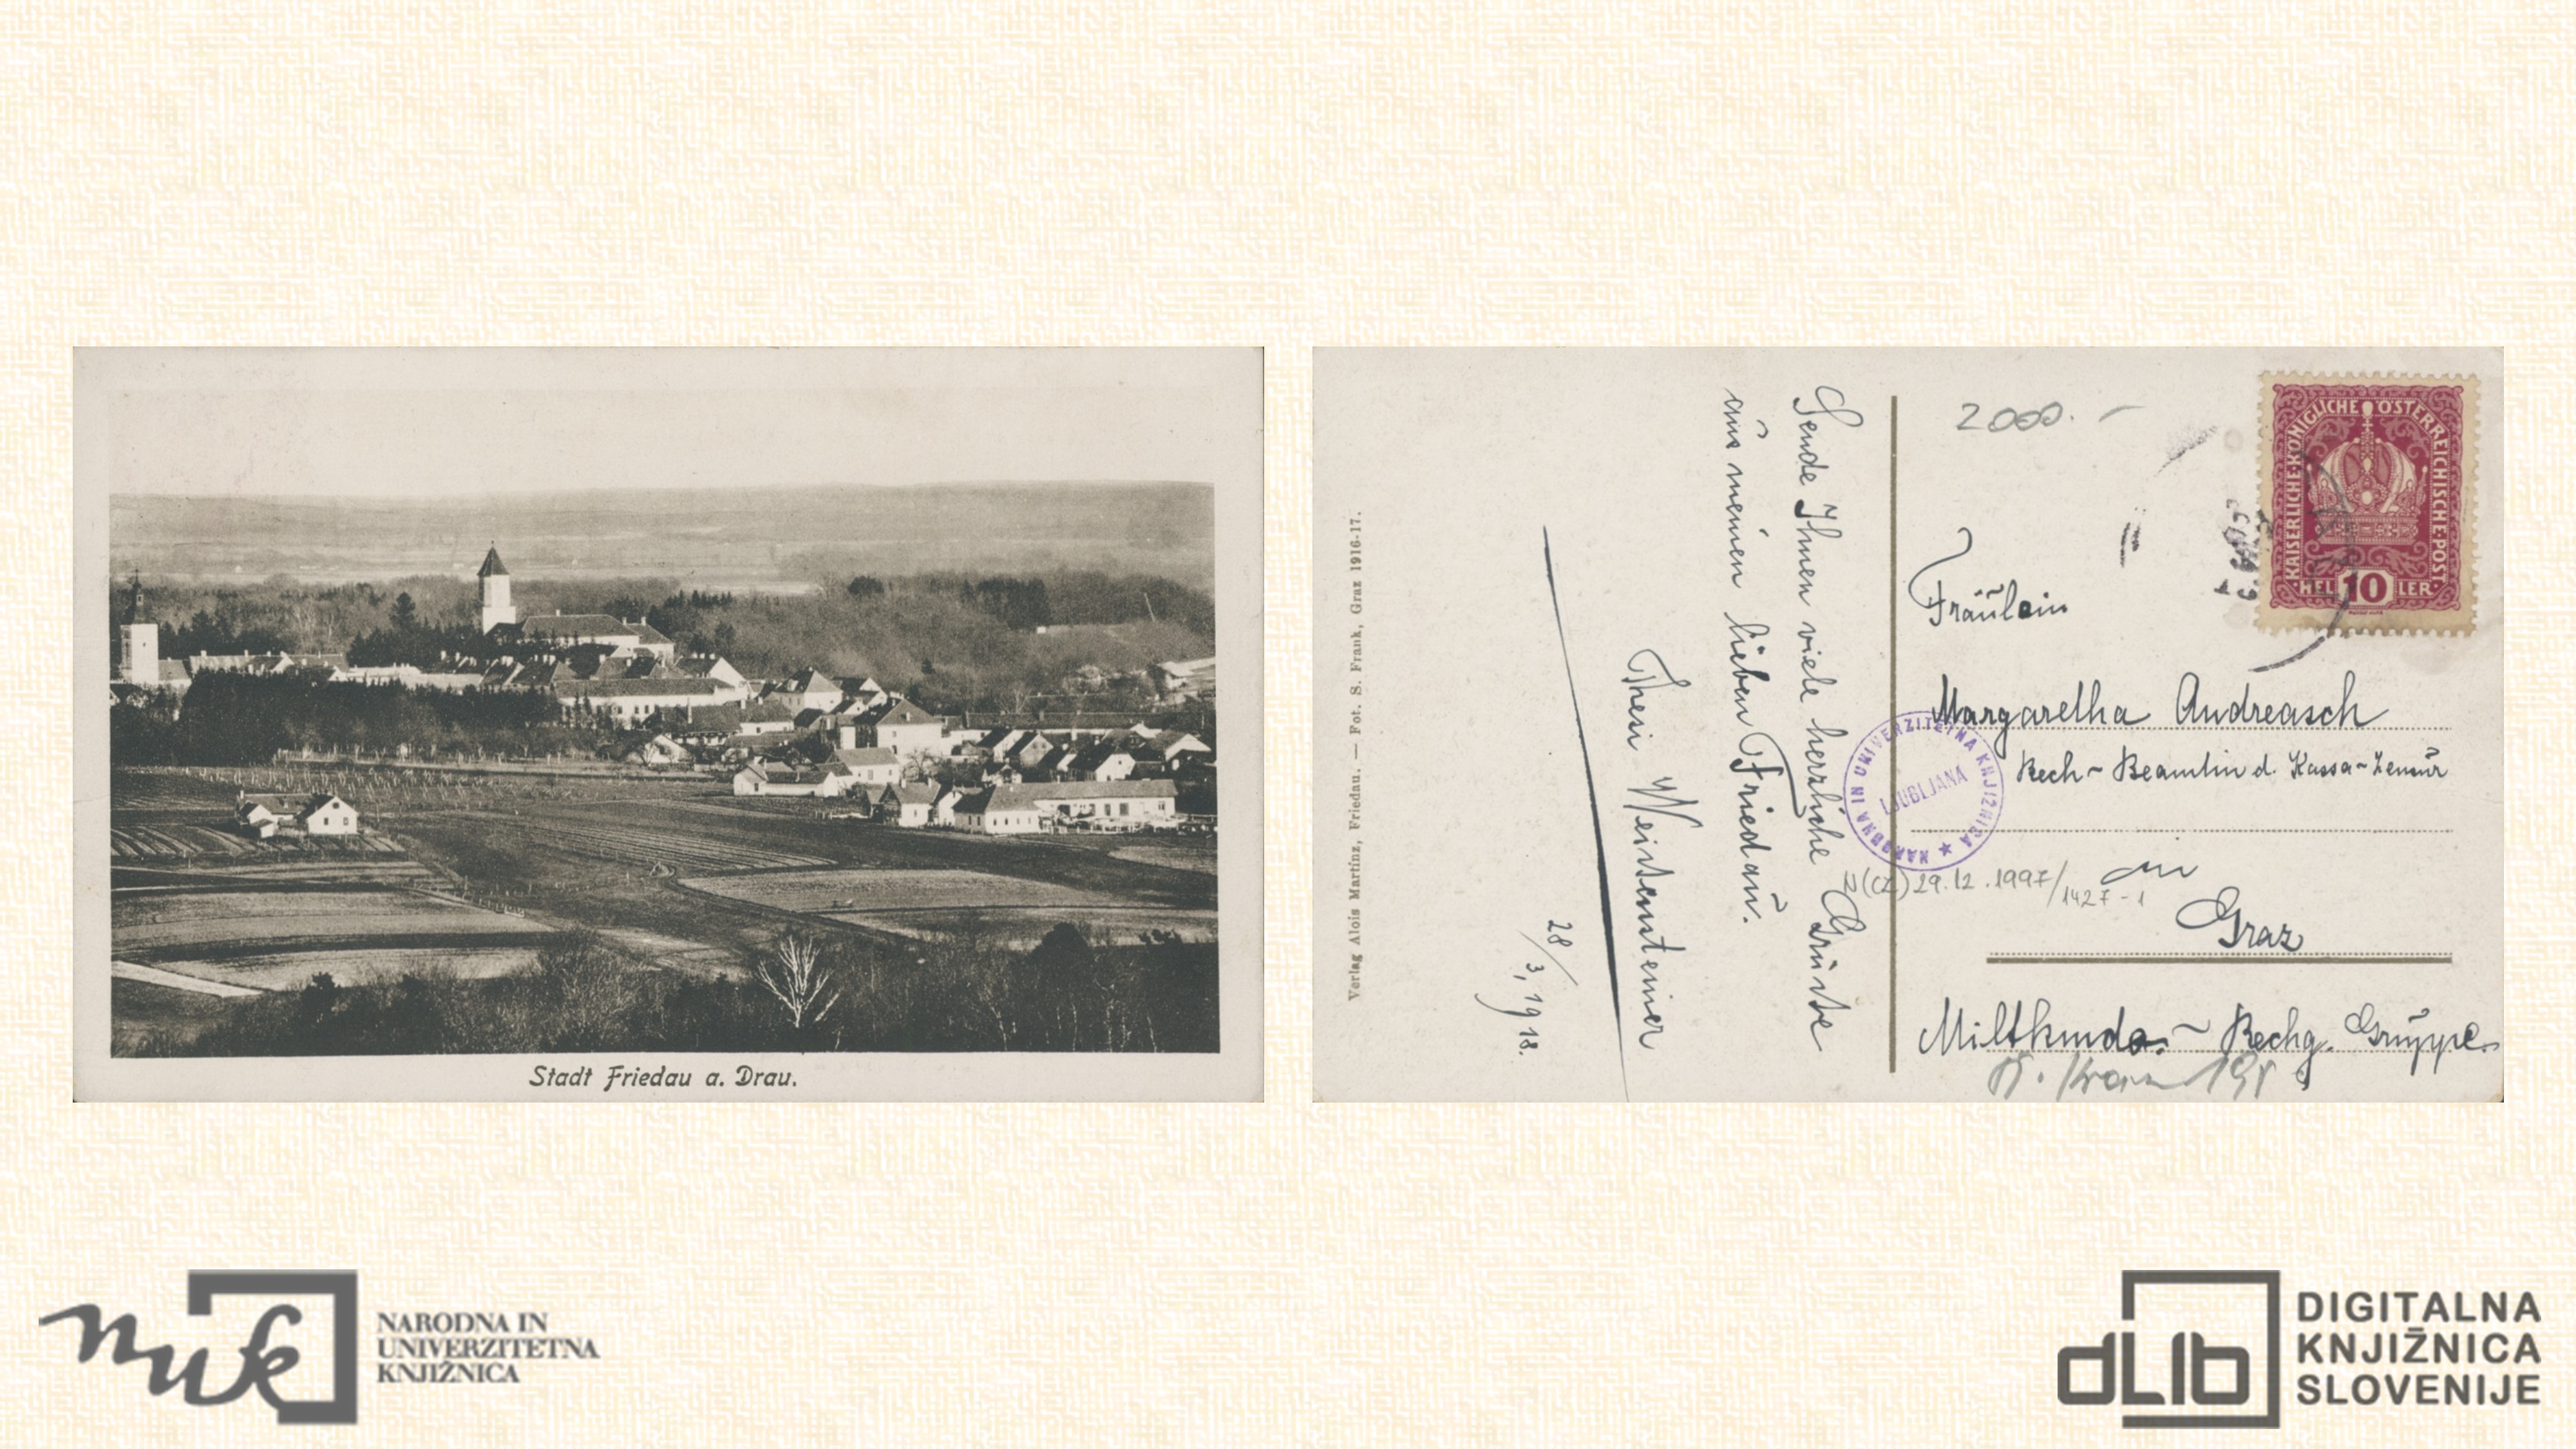 Stadt Friedau a. Drau.
Verlag Alois Martinz, Friedau. — Fot. S. Frank, Graz 1916-17.
Sende Ihnen viele herzliche Grüsse
aus meinen lieben Friedau.
Thesi Weistensteiner
28/3, 1918.
2000.-
KAISERLICHE·KÖNIGLICHE·ÖSTERREICHISCHE·POST
HEL 10 LER
Fräulein
Margaretha Andreasch
Rech-Beamtin d. Kassa-Zensur
NARODNA IN UNIVERZITETNA KNJIŽNICA ★
LJUBLJANA
29.12.1997/1427-1
in
Graz
Rechg. Gruppe
NARODNA IN
UNIVERZITETNA
KNJIŽNICA
nuk
dLib
DIGITALNA
KNJIŽNICA
SLOVENIJE